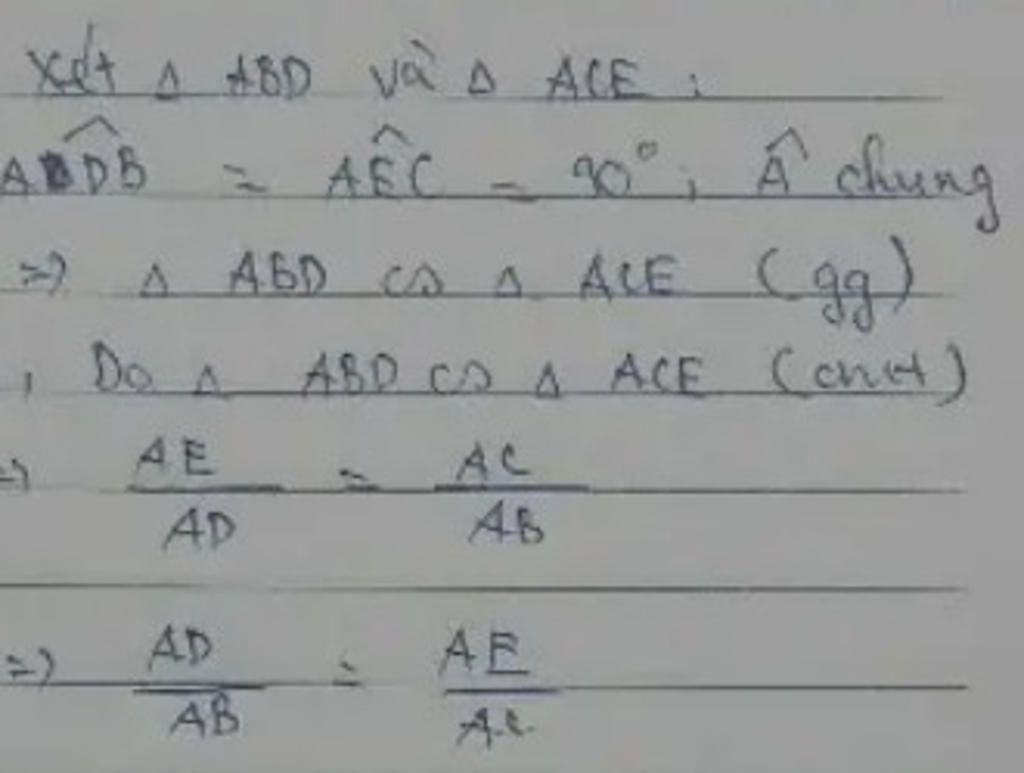 Xét Δ ABD và Δ ACE :
ADB = AEC = 90°; Â chung
=> Δ ABD ∽ Δ ACE (gg)
, Do Δ ABD ∽ Δ ACE (cmt)
=> AE/AD = AC/AB
=> AD/AB = AE/AC